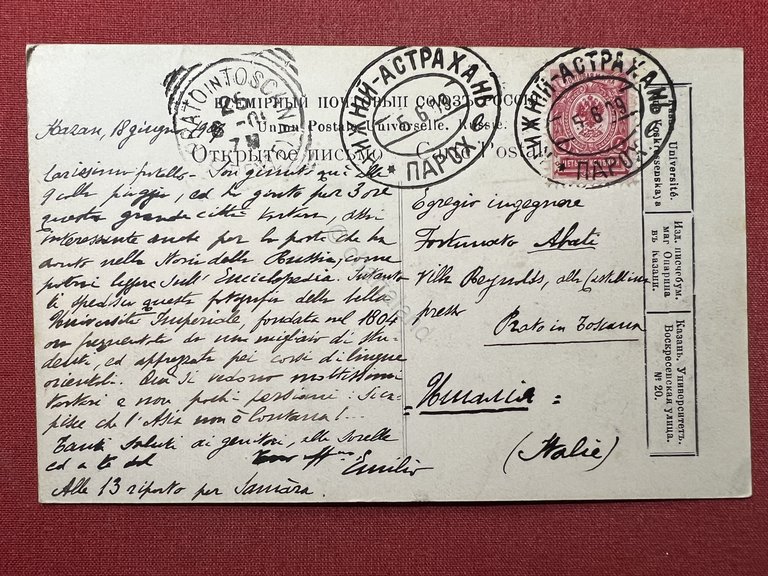 ВСЕМІРНЫЙ ПОЧТОВЫЙ СОЮЗЪ. РОССІЯ.
Union Postale Universelle. Russie.
Открытое письмо. Carte Postale.
PRATO IN TOSCANA
НИЖНІЙ-АСТРАХАНЬ
5.6.09
ПАРОХ.
НИЖНІЙ-АСТРАХАНЬ
5.6.09
ПАРОХ.
Kazan, 18 giugno 1909
Carissimo fratello - Son giunto qui alle
9 alla pioggia, ed ho girato per 3 ore
questa grande città tartara, assai
interessante anche per la parte che ha
avuto nella Storia della Russia, come
potrai leggere sull'Enciclopedia. Intanto
ti spedisco questa fotografia della bella
Università Imperiale, fondata nel 1804
ora frequentata da un migliaio di stu-
denti, ed apprezzata pei corsi di lingue
orientali. Qui si vedono moltissimi
tartari e non pochi persiani: si ca-
pisce che l'Asia non è lontana!...
Tanti saluti ai genitori, alle sorelle
ed a te dal
Emilio
Alle 13 riparto per Samàra.
Egregio ingegnere
Fortunato Abati
Villa Reynolds, alla Castellina
presso
Prato in Toscana
= Италія =
(Italie)
Université.
Voskressenskaja
Изд. писчебум.
маг. Опарина
въ Казани.
Казань. Университетъ.
Воскресенская улица.
№ 20.